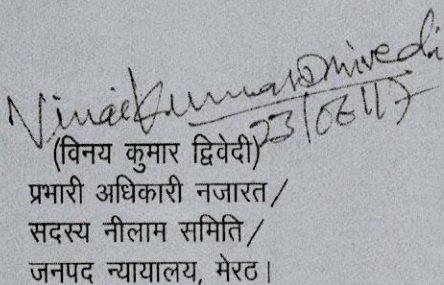 Vinai Kumar Dwivedi
23/06/17
(विनय कुमार द्विवेदी)
प्रभारी अधिकारी नजारत/
सदस्य नीलाम समिति/
जनपद न्यायालय, मेरठ।